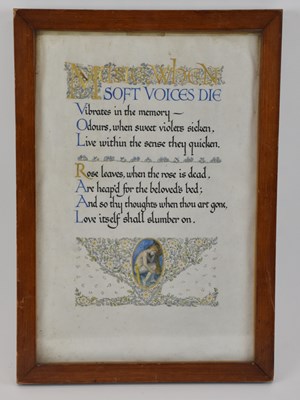 Music when
SOFT VOICES DIE
Vibrates in the memory—
Odours, when sweet violets sicken,
Live within the sense they quicken.
Rose leaves, when the rose is dead,
Are heap'd for the beloved's bed;
And so thy thoughts when thou art gone,
Love itself shall slumber on.